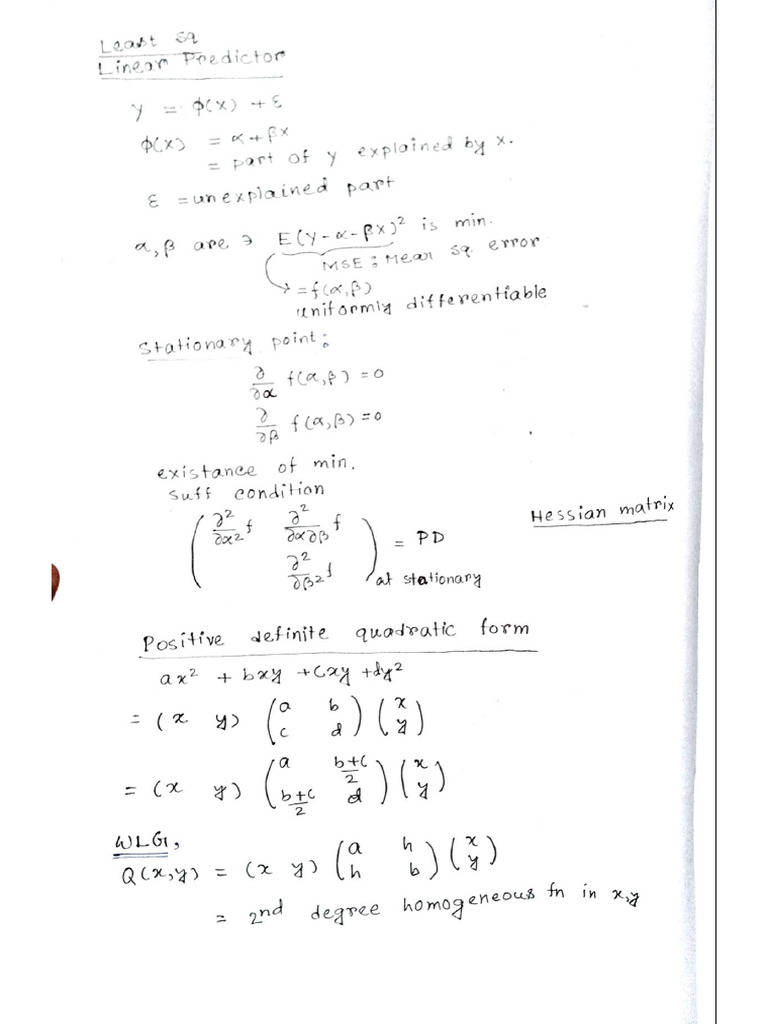 Least sq
Linear Predictor
y = φ(x) + ε
φ(x) = α + βx
= part of y explained by x.
ε = unexplained part
α, β are ∋ E(Y-α-βX)² is min.
MSE: Mean sq. error
= f(α,β)
uniformly differentiable
Stationary point:
∂/∂α f(α,β) = 0
∂/∂β f(α,β) = 0
existance of min.
suff condition
Hessian matrix
( ∂²/∂α² f ∂²/∂α∂β f
∂²/∂β² f ) = PD
at stationary
Positive definite quadratic form
ax² + bxy + cxy + dy²
= (x y) (a b
c d) (x
y)
= (x y) (a b+c/2
b+c/2 d) (x
y)
WLG,
Q(x,y) = (x y) (a h
h b) (x
y)
= 2nd degree homogeneous fn in x,y